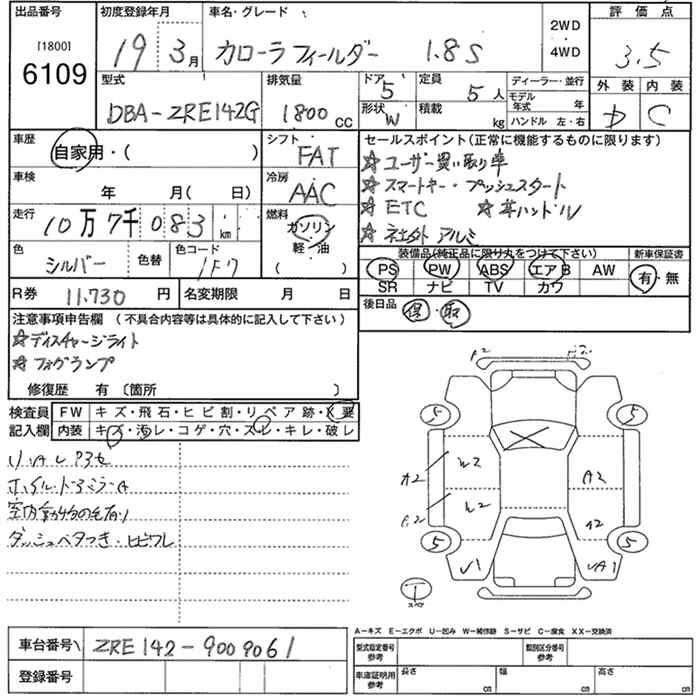 出品番号 初度登録年月 車名・グレード 2WD・4WD 評価点
[1800] 6109 19 3月 カローラフィールダー 1.8S 3.5
外装 内装
D C
型式 排気量 ドア 5 定員 5人 ディーラー・並行
DBA-ZRE142G 1800cc 形状 W 積載 kg モデル年式 年
ハンドル 左・右
車歴 自家用・( ) シフト FAT セールスポイント(正常に機能するものに限ります)
☆ユーザー買い取り車
車検 年 月( 日) 冷房 AAC ☆スマートキー・プッシュスタート
☆ETC ☆革ハンドル
走行 10万7千083km 燃料 ガソリン 軽・油 ( )
☆社外アルミ
色 シルバー 色替 色コード 1F7
装備品(純正品に限り丸をつけて下さい) 新車保証書
PS PW ABS エアB AW 有・無
SR ナビ TV カワ
R券 11.730円 名変期限 月 日 後日品 保・取
注意事項申告欄 (不具合内容等は具体的に記入して下さい)
☆ディスチャージライト
☆フォグランプ
修復歴 有 〔箇所 〕
検査員記入欄 FW キズ・飛石・ヒビ割・リペア跡・X要
内装 キズ・汚レ・コゲ・穴・スレ・キレ・破レ
ホイル・ドアミラーA
室内動物の毛有り
ダッシュベタつき・ヒビワレ
5 5
A2
A2
5 5
スペア
A-キズ E-エクボ U-凹み W-補修跡 S-サビ C-腐食 XX-交換済
車台番号 ZRE142-9009061 型式指定番号 参考 類別区分番号 参考
登録番号 車庫証明用 参考 長さ cm 幅 cm 高さ cm